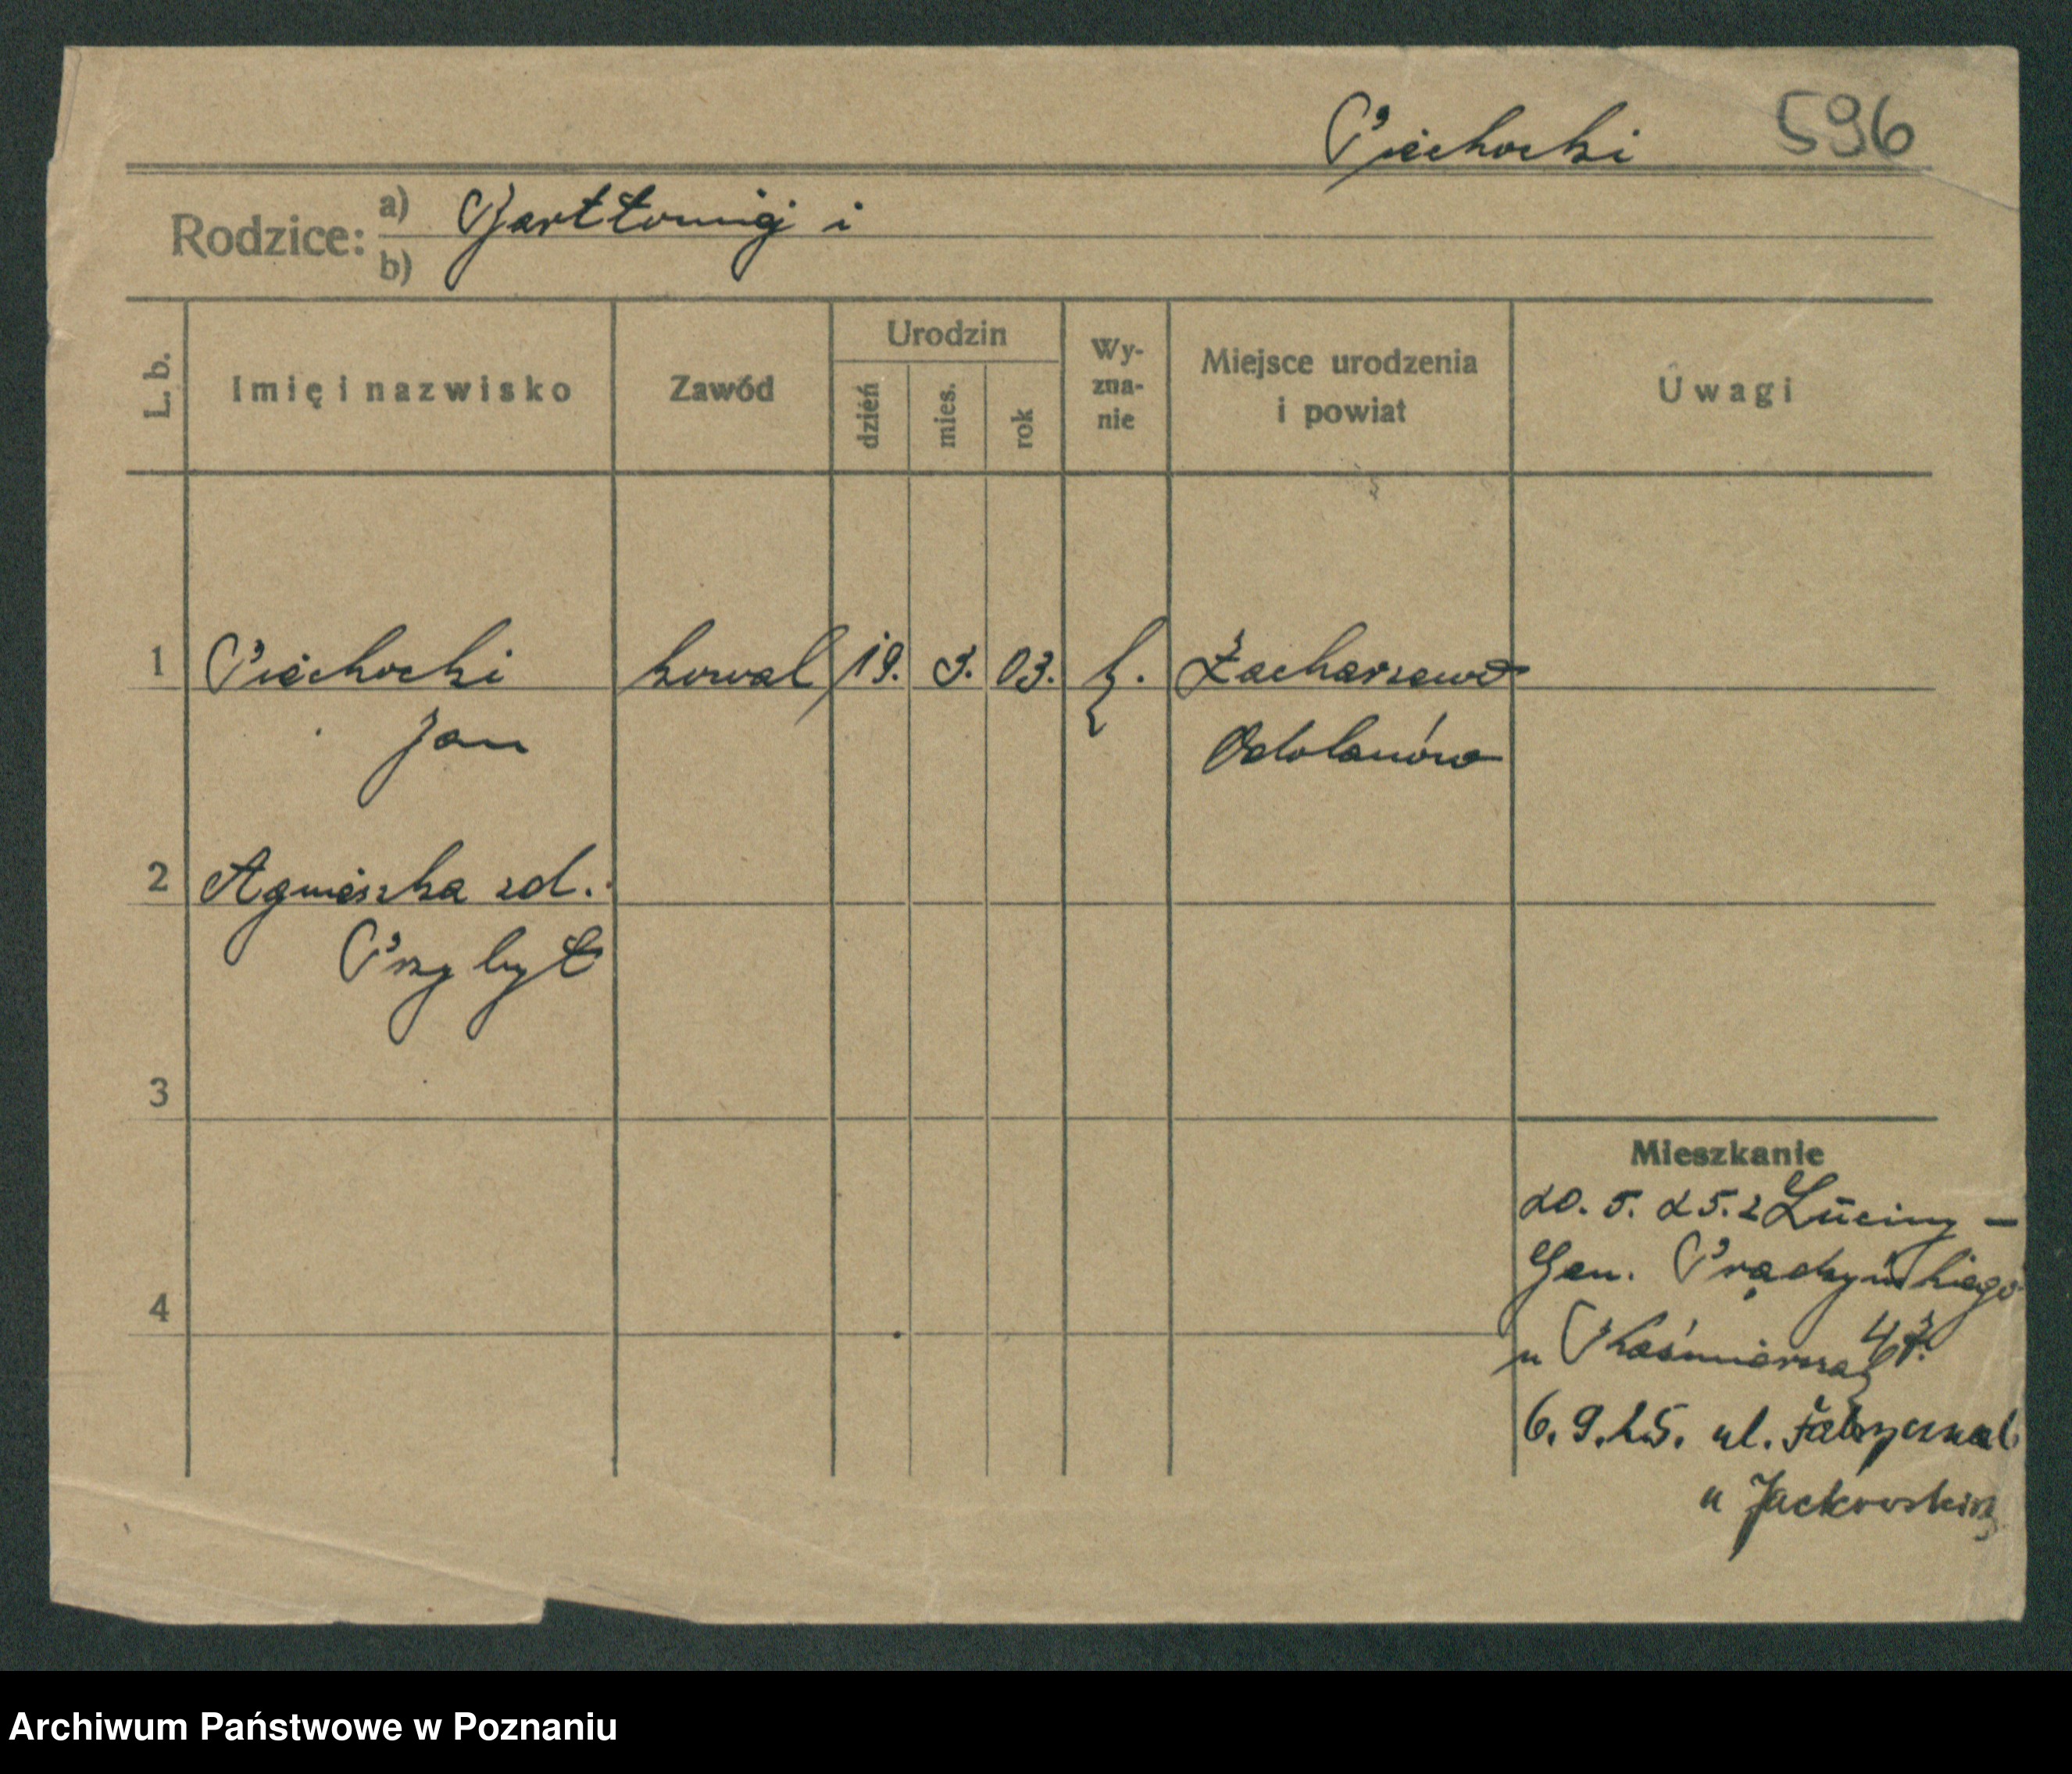 Piechocki 596
Rodzice: a) Bartłomiej i
b)
L. b. Imię i nazwisko Zawód Urodzin dzień mies. rok Wy-zna-nie Miejsce urodzenia i powiat Uwagi
1 Piechocki kowal 19. 03. k. Zacharzew
Jan Odolanów
2 Agnieszka zd.
Przybył
3
Mieszkanie
20. 5. 25. z Luciny –
Gen. Prądzyńskiego
4
u Kaźmierczak 47.
6. 9. 25. ul. Fabryczna
u Jackowskiej
Archiwum Państwowe w Poznaniu